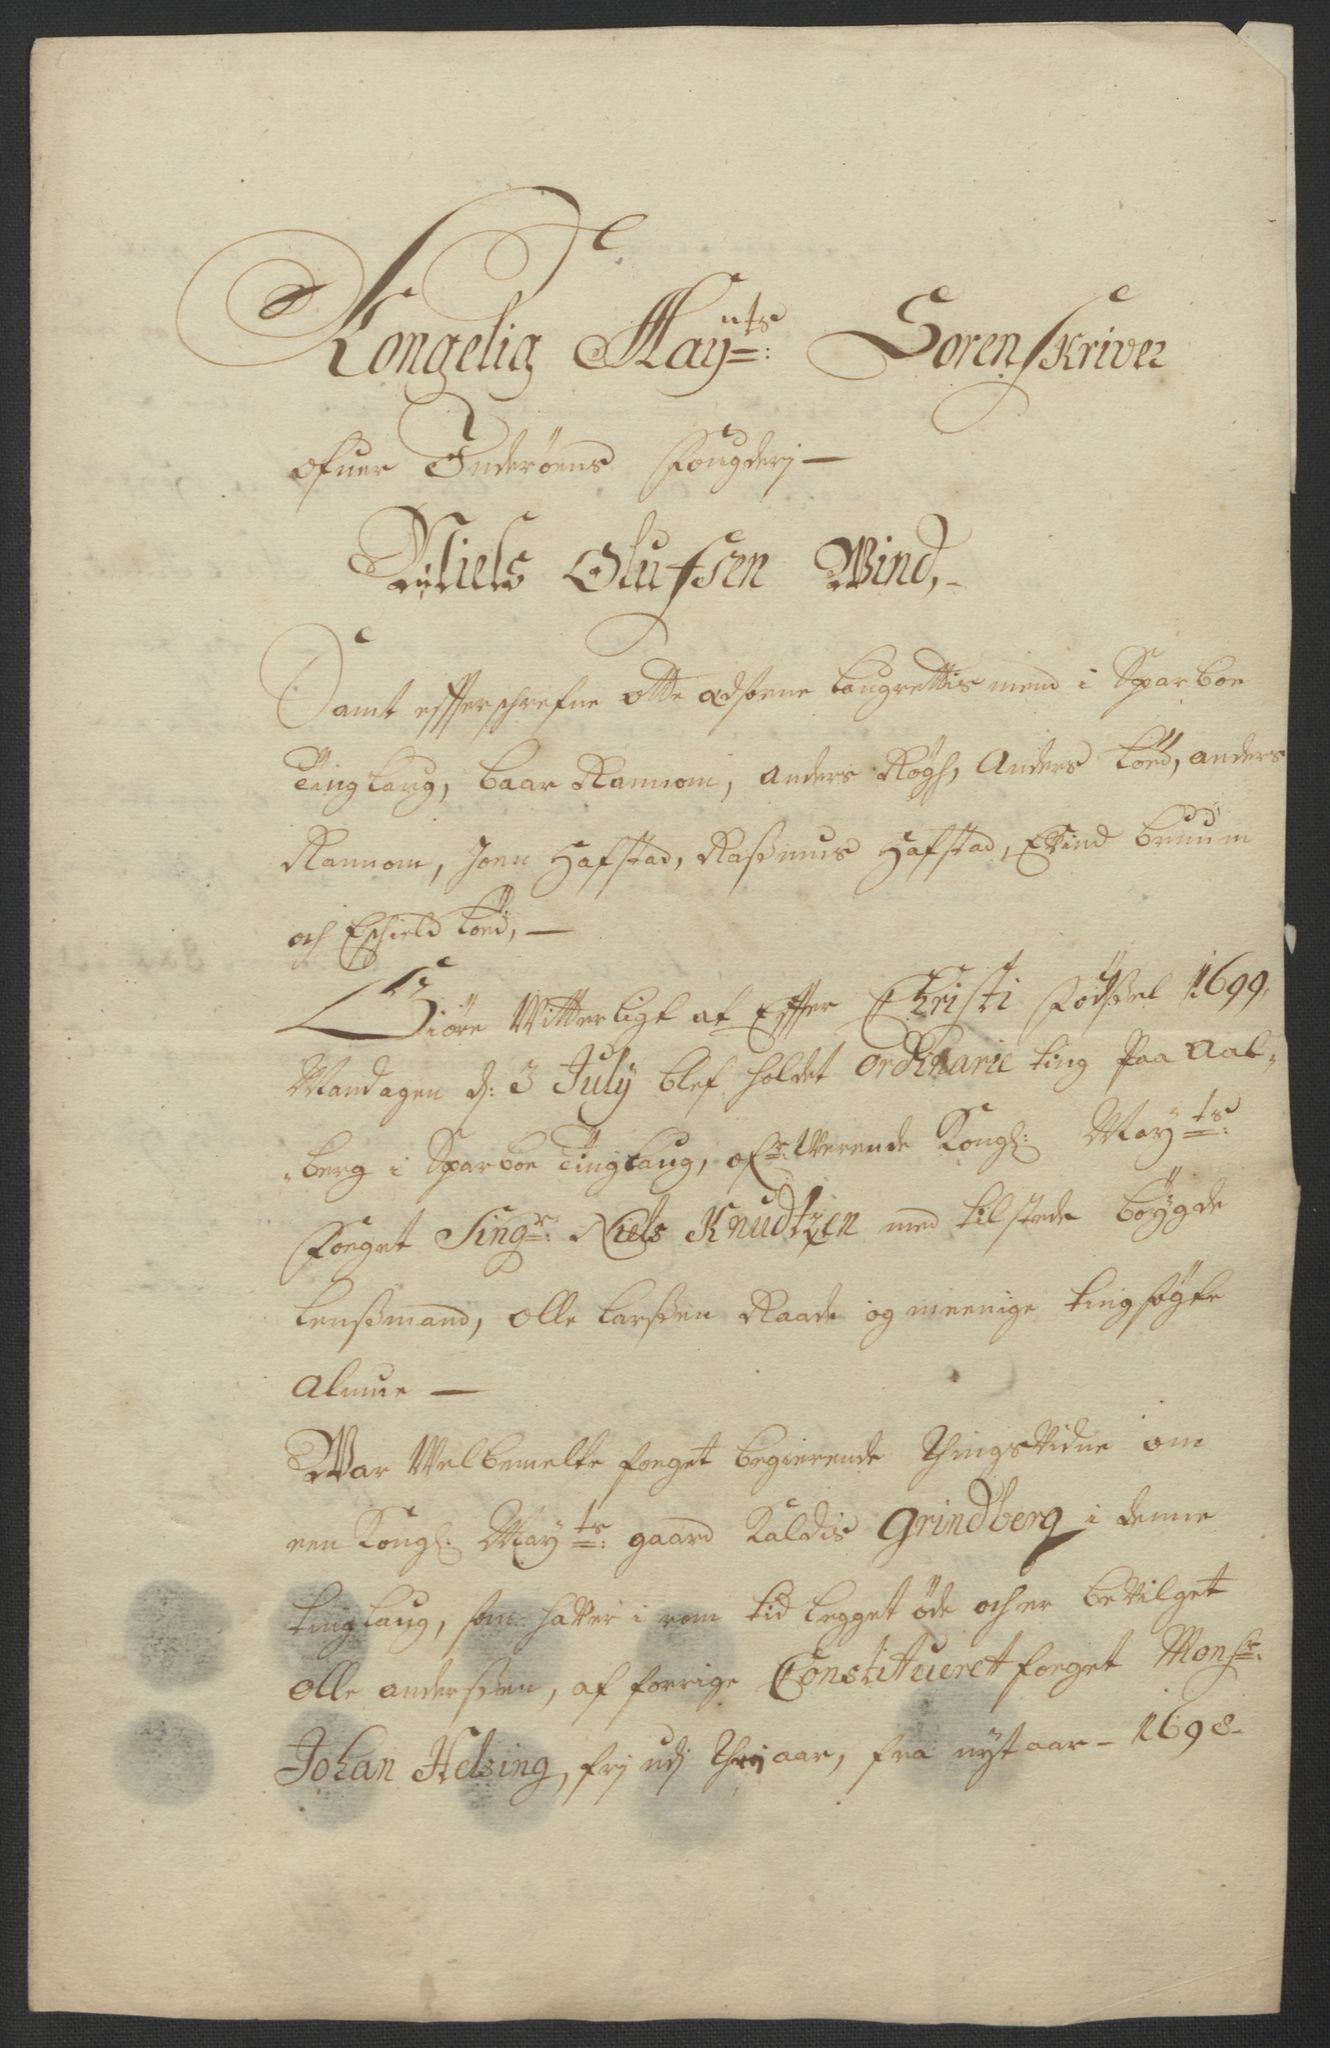 Kongelig Mayts: Sorenskriver
ofuer Inderöens fougderj —
Niels Olufsen Wind,
Samt effterschrefne otte edsorne laugrettis mend i Sparboe
Tinglaug, Baar Rannom, Anders Rögh, Anders Lörd, anders
Rannom, Joen Hafstad, Rasmus Hafstad, Eivind Bruum
och Eschield Lörd, —
Giöre Witterligt at Effter Christi födssel 1699,
Mandagen d: 3 July blef holdet Ordinarie ting Paa Aal-
berg i Sparboe Tinglaug, ofr: Werende Kongl: Mayts:
foeget Singr: Niels Knudtzen med tilstede böygde
lensmand, Olle Larssen Raade og meenige tingsögte
Almue —
War Welbemelte foeget begierende Thingsvidne om
een Kongl: Mayts: gaard Kaldis Grindberg i denne
tinglaug, som haver i rom tid legget öde och er bevilget
Olle anderssen, af forrige Constitueret foeget Monsr:
Johan Helsing, frj udj Thrj aar, fra nyt aar - 1698-